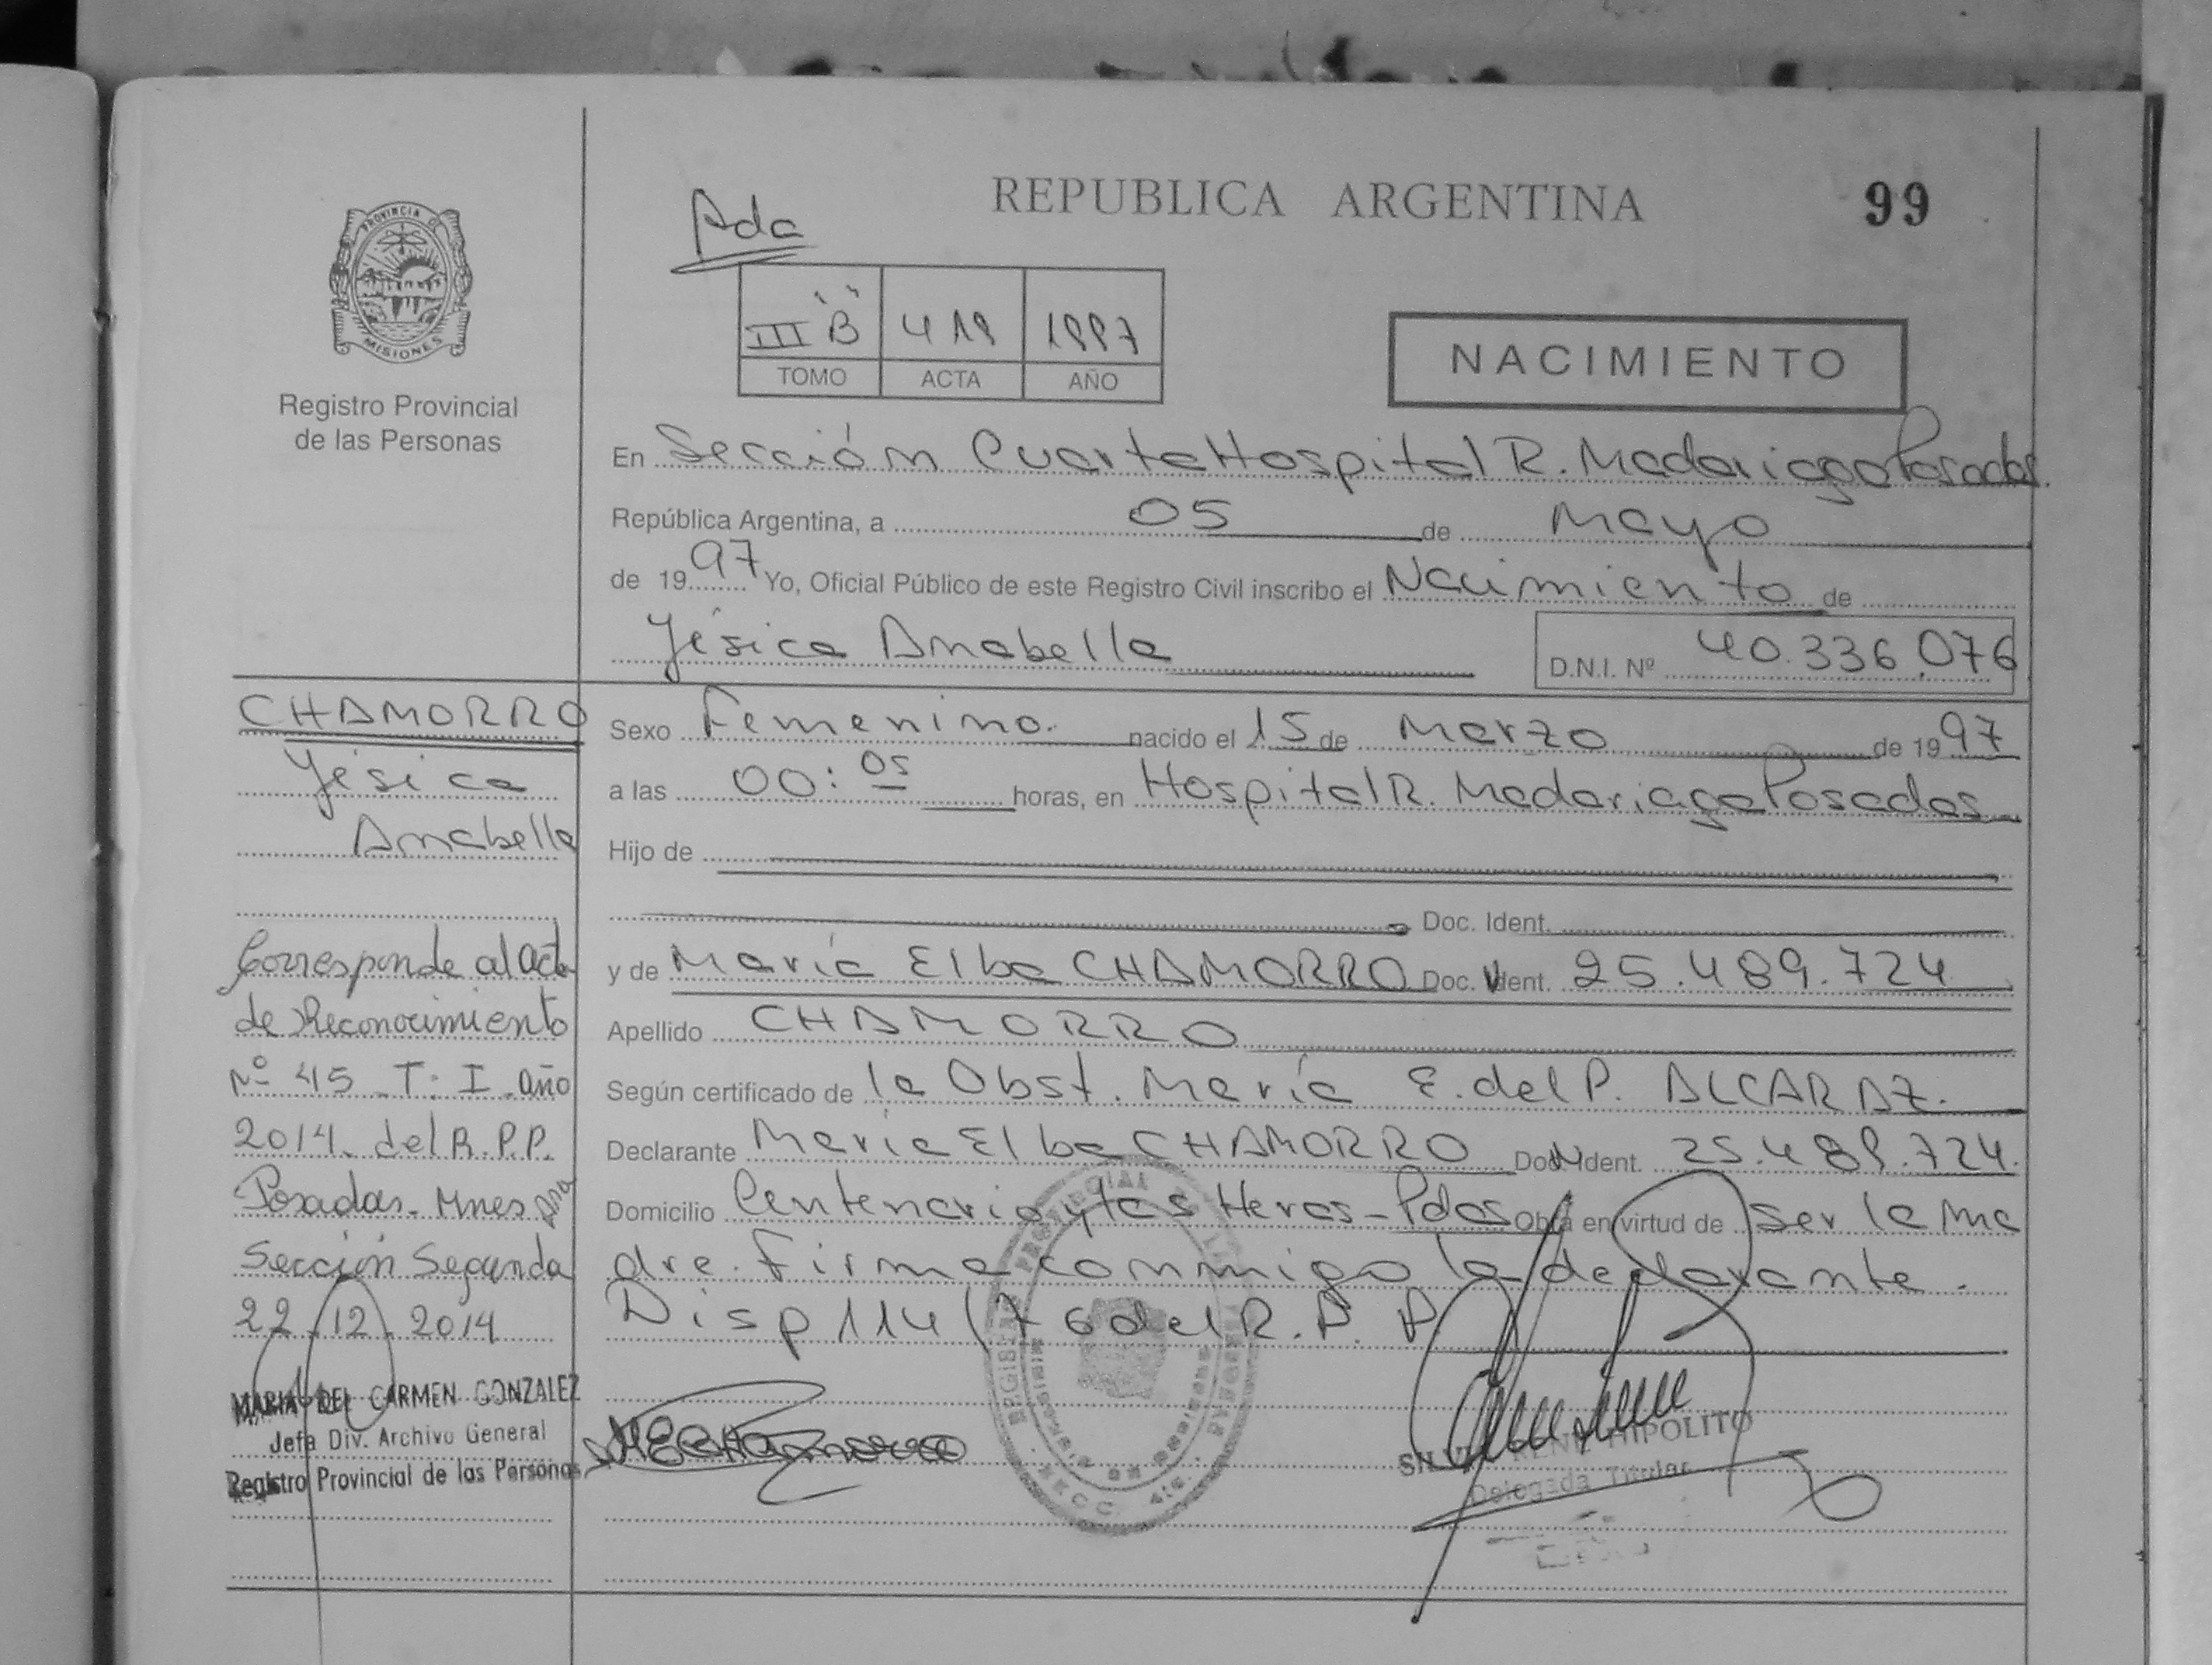 REPUBLICA ARGENTINA 99
Ada
III "B" 419 1997
TOMO ACTA AÑO
NACIMIENTO
PROVINCIA D
MISIONES
Registro Provincial
de las Personas
En Sección Cuarta Hospital R. Madariaga Posadas.
República Argentina, a 05 de Mayo
de 1997 Yo, Oficial Público de este Registro Civil inscribo el Nacimiento de
Yésica Anabella D.N.I. Nº 40.336.076
Sexo Femenino. nacido el 15 de Marzo de 1997
a las 00:05 horas, en Hospital R. Madariaga Posadas
Hijo de
Doc. Ident.
y de María Elba CHAMORRO Doc. Ident. 25.489.724
Apellido CHAMORRO
Según certificado de la Obst. María E. del P. ALCARAZ.
Declarante María Elba CHAMORRO Doc. Ident. 25.489.724.
Domicilio Centenario y las Heras - Pdas Obra en virtud de ser la ma
dre. Firma conmigo la declarante.
Disp 114/76 del R. P. P.
CHAMORRO
Yésica
Anabella
Corresponde al acta
de Reconocimiento
Nº 45 T: I año
2014 del R.P.P.
Posadas - Mnes
Sección Segunda
22.12.2014
MARIA DEL CARMEN GONZALEZ
Jefa Div. Archivo General
Registro Provincial de las Personas
HIPOLITO
Delegada Titular